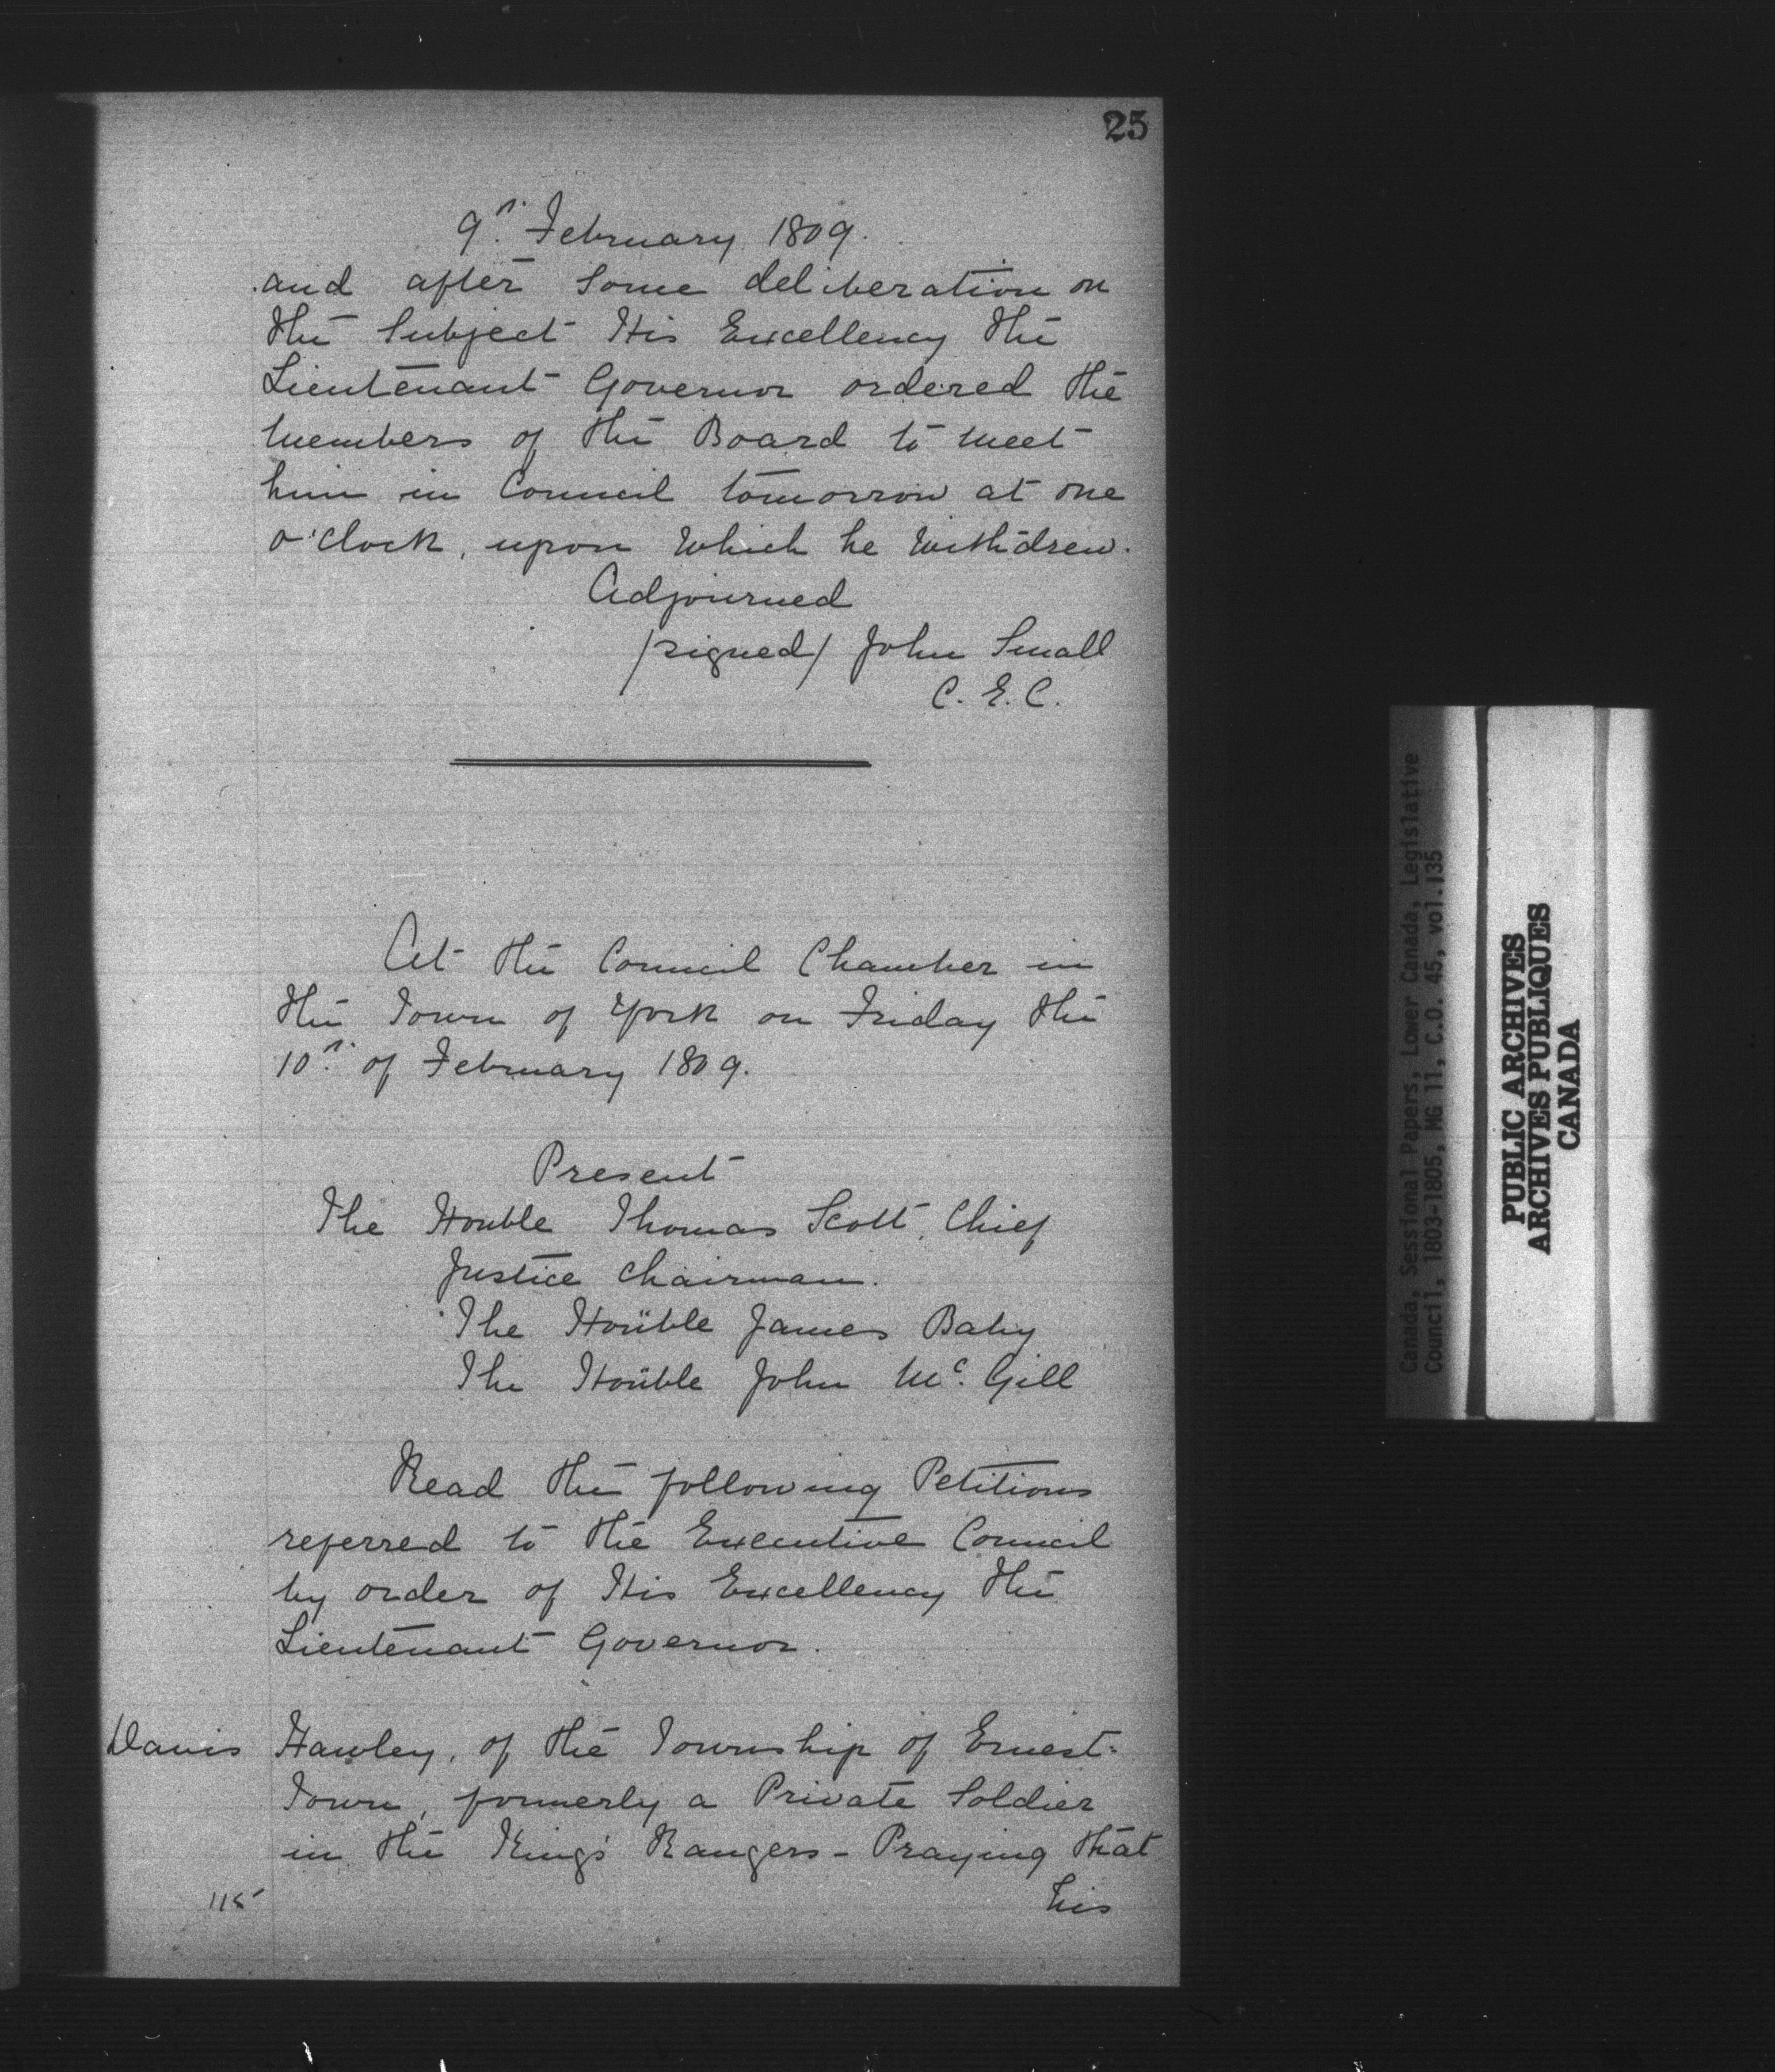 25
9th February 1809.
and after some deliberation on
the Subject His Excellency the
Lieutenant Governor ordered the
members of the Board to meet
him in Council tomorrow at one
o'clock, upon which he withdrew.
Adjourned
/signed/ John Small
C. E. C.
At the Council Chamber in
the Town of York on Friday the
10th of February 1809.
Present
The Honble Thomas Scott, Chief
Justice Chairman.
The Honble James Baby
The Honble John Mc Gill
Read the following Petitions
referred to the Executive Council
by order of His Excellency the
Lieutenant Governor.
Davis Hawley, of the Township of Ernest-
Town, formerly a Private Soldier
in the King's Rangers - Praying that
115 his
Canada, Sessional Papers, Lower Canada, Legislative
Council, 1803-1805, MG 11, C.O. 45, vol.135
PUBLIC ARCHIVES
ARCHIVES PUBLIQUES
CANADA